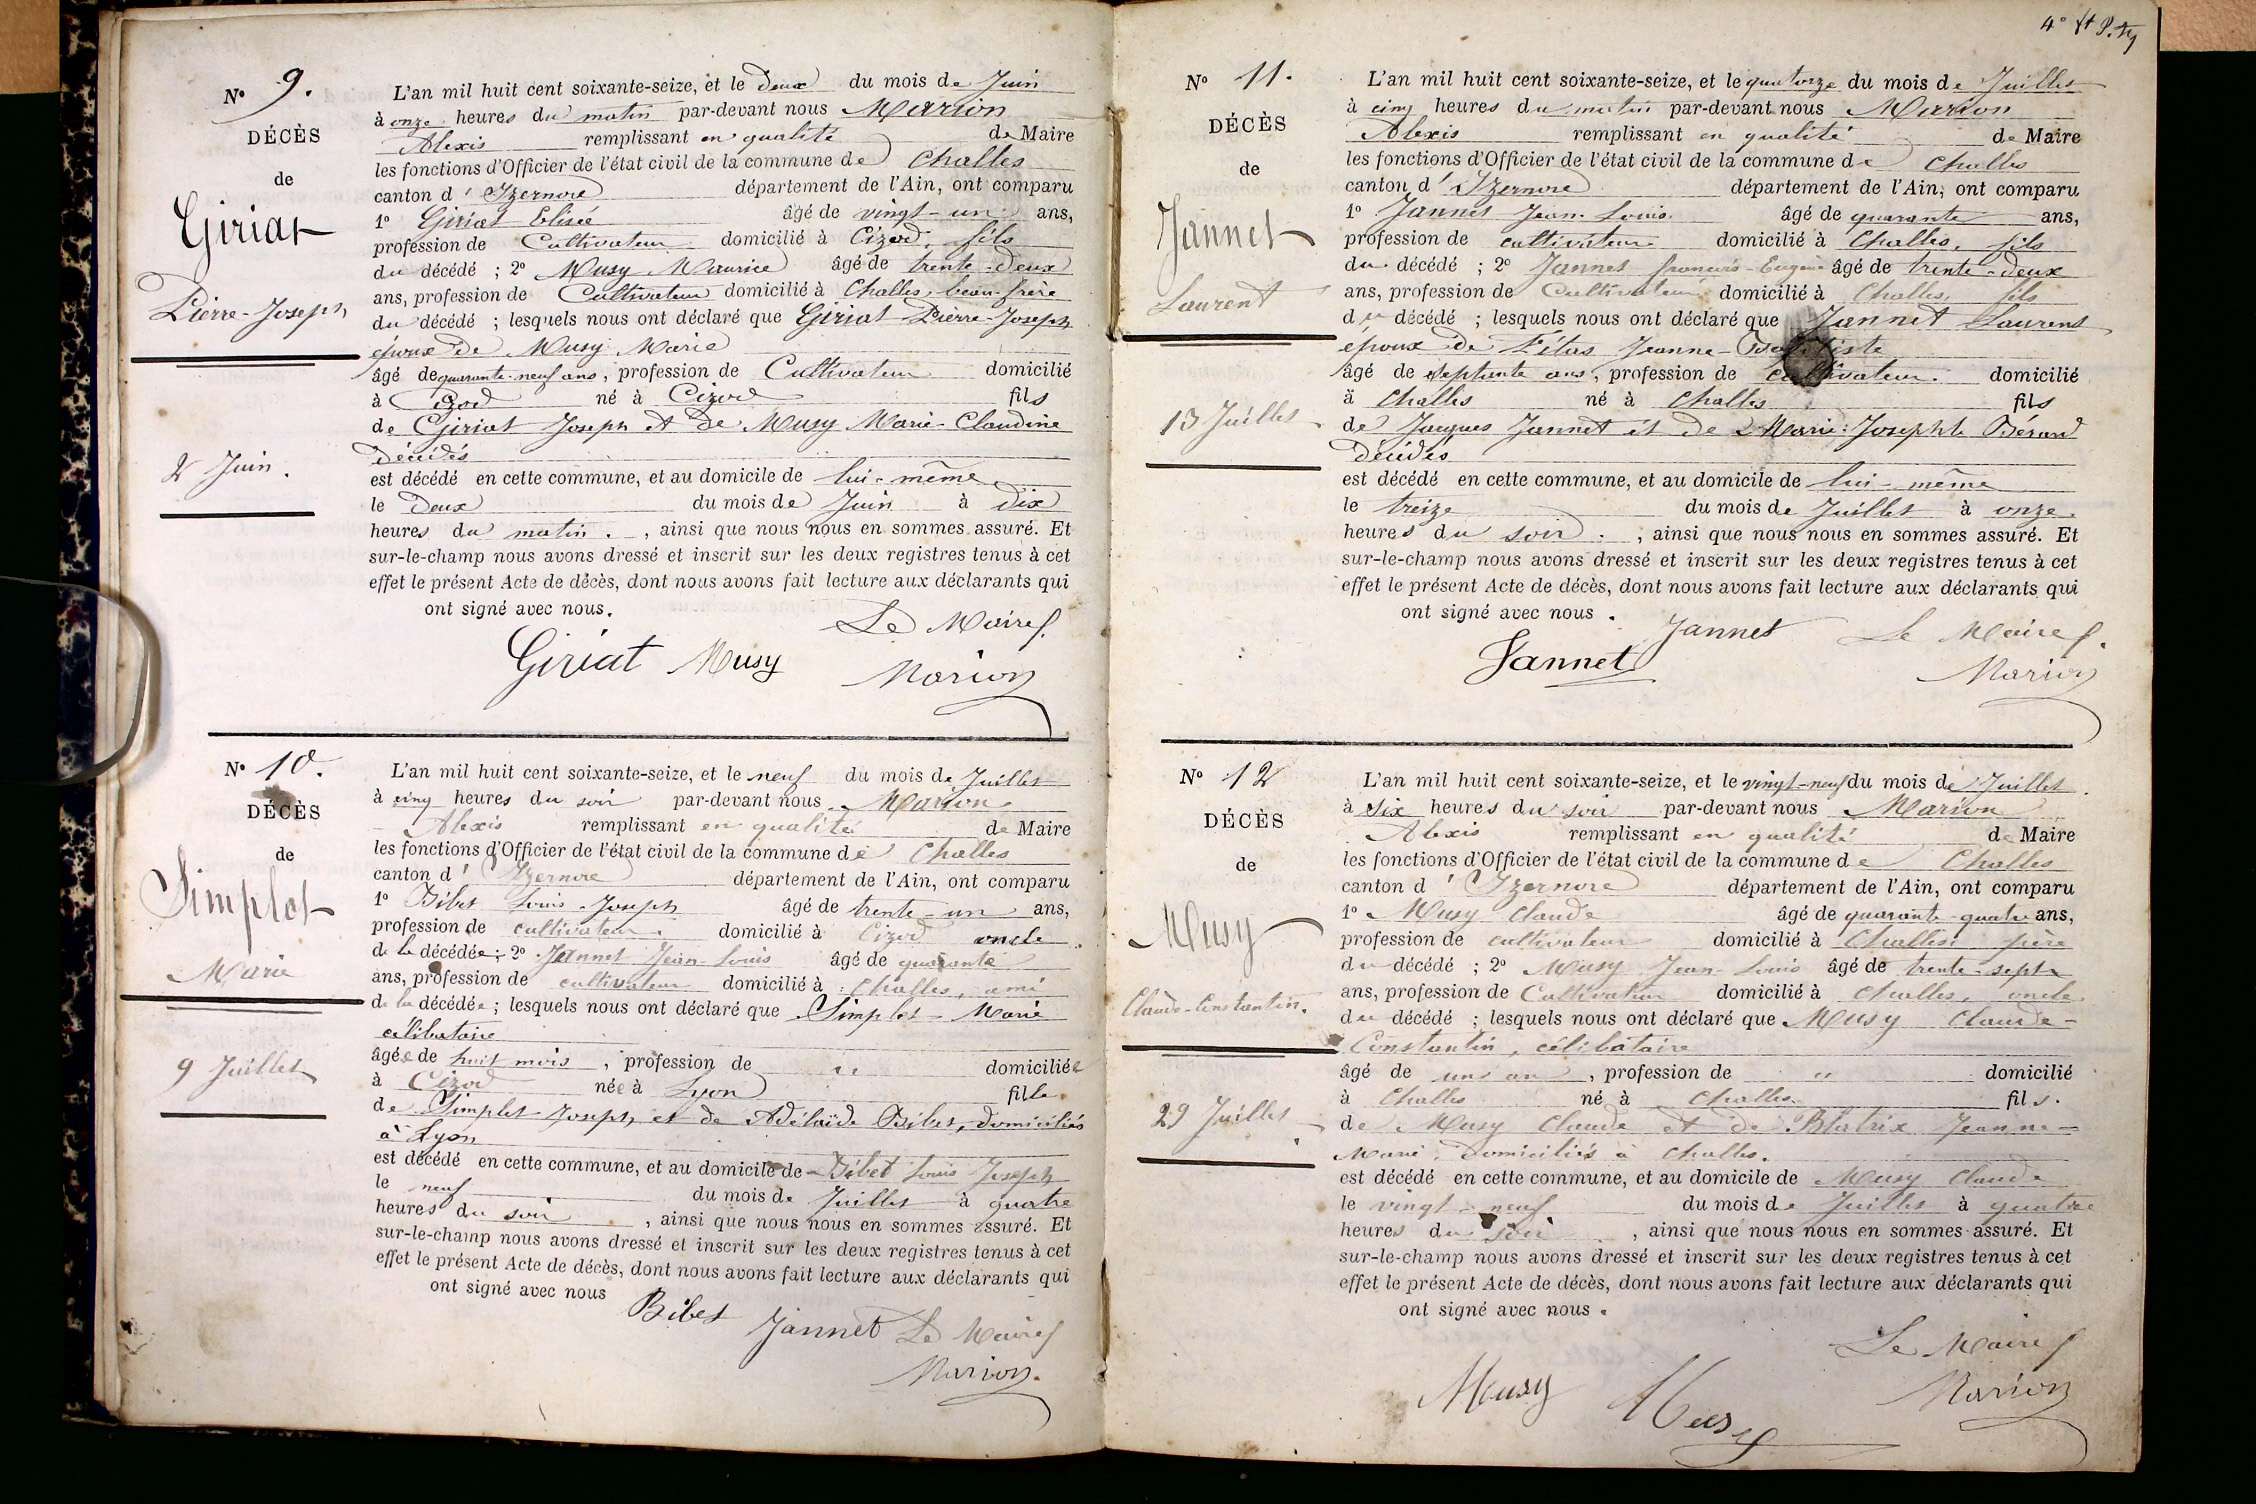 N° 9.
DÉCÈS
de
Giriat
Pierre-Joseph
2 Juin.
L'an mil huit cent soixante-seize, et le Deux du mois de Juin
à onze heures du matin par-devant nous Marion
Alexis remplissant en qualité de Maire
les fonctions d'Officier de l'état civil de la commune de Challes
canton d'Izernore département de l'Ain, ont comparu
1° Giriat Elisée âgé de vingt-un ans,
profession de Cultivateur domicilié à Cizod, fils
du décédé ; 2° Musy Maurice âgé de trente-deux
ans, profession de Cultivateur domicilié à Challes, beau-frère
du décédé ; lesquels nous ont déclaré que Giriat Pierre-Joseph
époux de Musy Marie
âgé de quarante-neuf ans, profession de Cultivateur domicilié
à Cizod né à Cizod fils
de Giriat Joseph et de Musy Marie-Claudine
Décédés
est décédé en cette commune, et au domicile de lui-même
le Deux du mois de Juin à Dix
heures du matin. , ainsi que nous nous en sommes assuré. Et
sur-le-champ nous avons dressé et inscrit sur les deux registres tenus à cet
effet le présent Acte de décès, dont nous avons fait lecture aux déclarants qui
ont signé avec nous.
Le Maire
Giriat Musy Marion
N° 10.
DÉCÈS
de
Simplet
Marie
9 Juillet
L'an mil huit cent soixante-seize, et le neuf du mois de Juillet
à cinq heures du soir par-devant nous Marion
Alexis remplissant en qualité de Maire
les fonctions d'Officier de l'état civil de la commune de Challes
canton d'Izernore département de l'Ain, ont comparu
1° Bibet Louis-Joseph âgé de trente-un ans,
profession de cultivateur domicilié à Cizod oncle
de la décédée ; 2° Jannet Jean-Louis âgé de quarante
ans, profession de cultivateur domicilié à Challes, ami
de la décédée ; lesquels nous ont déclaré que Simplet Marie
célibataire
âgée de huit mois , profession de " domiciliée
à Cizod née à Lyon fille
de Simplet Joseph et de Adélaïde Bibet, domiciliés
à Lyon
est décédé en cette commune, et au domicile de Bibet Louis Joseph
le neuf du mois de Juillet à quatre
heures du soir , ainsi que nous nous en sommes assuré. Et
sur-le-champ nous avons dressé et inscrit sur les deux registres tenus à cet
effet le présent Acte de décès, dont nous avons fait lecture aux déclarants qui
ont signé avec nous
Bibet Jannet Le Maire
Marion.
4e
N° 11.
DÉCÈS
de
Jannet
Laurent
13 Juillet
L'an mil huit cent soixante-seize, et le quatorze du mois de Juillet
à cinq heures du matin par-devant nous Marion
Alexis remplissant en qualité de Maire
les fonctions d'Officier de l'état civil de la commune de Challes
canton d'Izernore département de l'Ain, ont comparu
1° Jannet Jean-Louis âgé de quarante ans,
profession de cultivateur domicilié à Challes, fils
du décédé ; 2° Jannet françois-Eugène âgé de trente-deux
ans, profession de Cultivateur domicilié à Challes, fils
du décédé ; lesquels nous ont déclaré que Jannet Laurent
époux de Létas Jeanne-Baptiste
âgé de septante ans, profession de cultivateur. domicilié
à Challes né à Challes fils
de Jacques Jannet et de Marie-Josephte Bérard
Décédés
est décédé en cette commune, et au domicile de lui-même
le treize du mois de Juillet à onze
heures du soir. , ainsi que nous nous en sommes assuré. Et
sur-le-champ nous avons dressé et inscrit sur les deux registres tenus à cet
effet le présent Acte de décès, dont nous avons fait lecture aux déclarants qui
ont signé avec nous.
Jannet Le Maire
Jannet Marion
N° 12
DÉCÈS
de
Musy
Claude-Constantin.
29 Juillet
L'an mil huit cent soixante-seize, et le vingt-neuf du mois de Juillet
à six heures du soir par-devant nous Marion
Alexis remplissant en qualité de Maire
les fonctions d'Officier de l'état civil de la commune de Challes
canton d'Izernore département de l'Ain, ont comparu
1° Musy Claude âgé de quarante-quatre ans,
profession de cultivateur domicilié à Challes père
du décédé ; 2° Musy Jean-Louis âgé de trente-sept
ans, profession de Cultivateur domicilié à Challes, oncle
du décédé ; lesquels nous ont déclaré que Musy Claude-
Constantin, célibataire
âgé de un an , profession de " domicilié
à Challes né à Challes fils.
de Musy Claude et de Blatrix Jeanne-
Marie, domiciliés à Challes.
est décédé en cette commune, et au domicile de Musy Claude
le vingt-neuf du mois de Juillet à quatre
heures du soir , ainsi que nous nous en sommes assuré. Et
sur-le-champ nous avons dressé et inscrit sur les deux registres tenus à cet
effet le présent Acte de décès, dont nous avons fait lecture aux déclarants qui
ont signé avec nous.
Le Maire
Musy Musy Marion